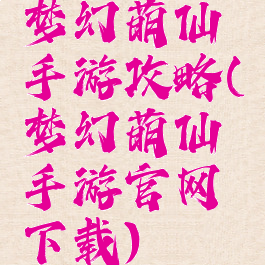 梦幻萌仙
手游攻略(
梦幻萌仙
手游官网
下载)